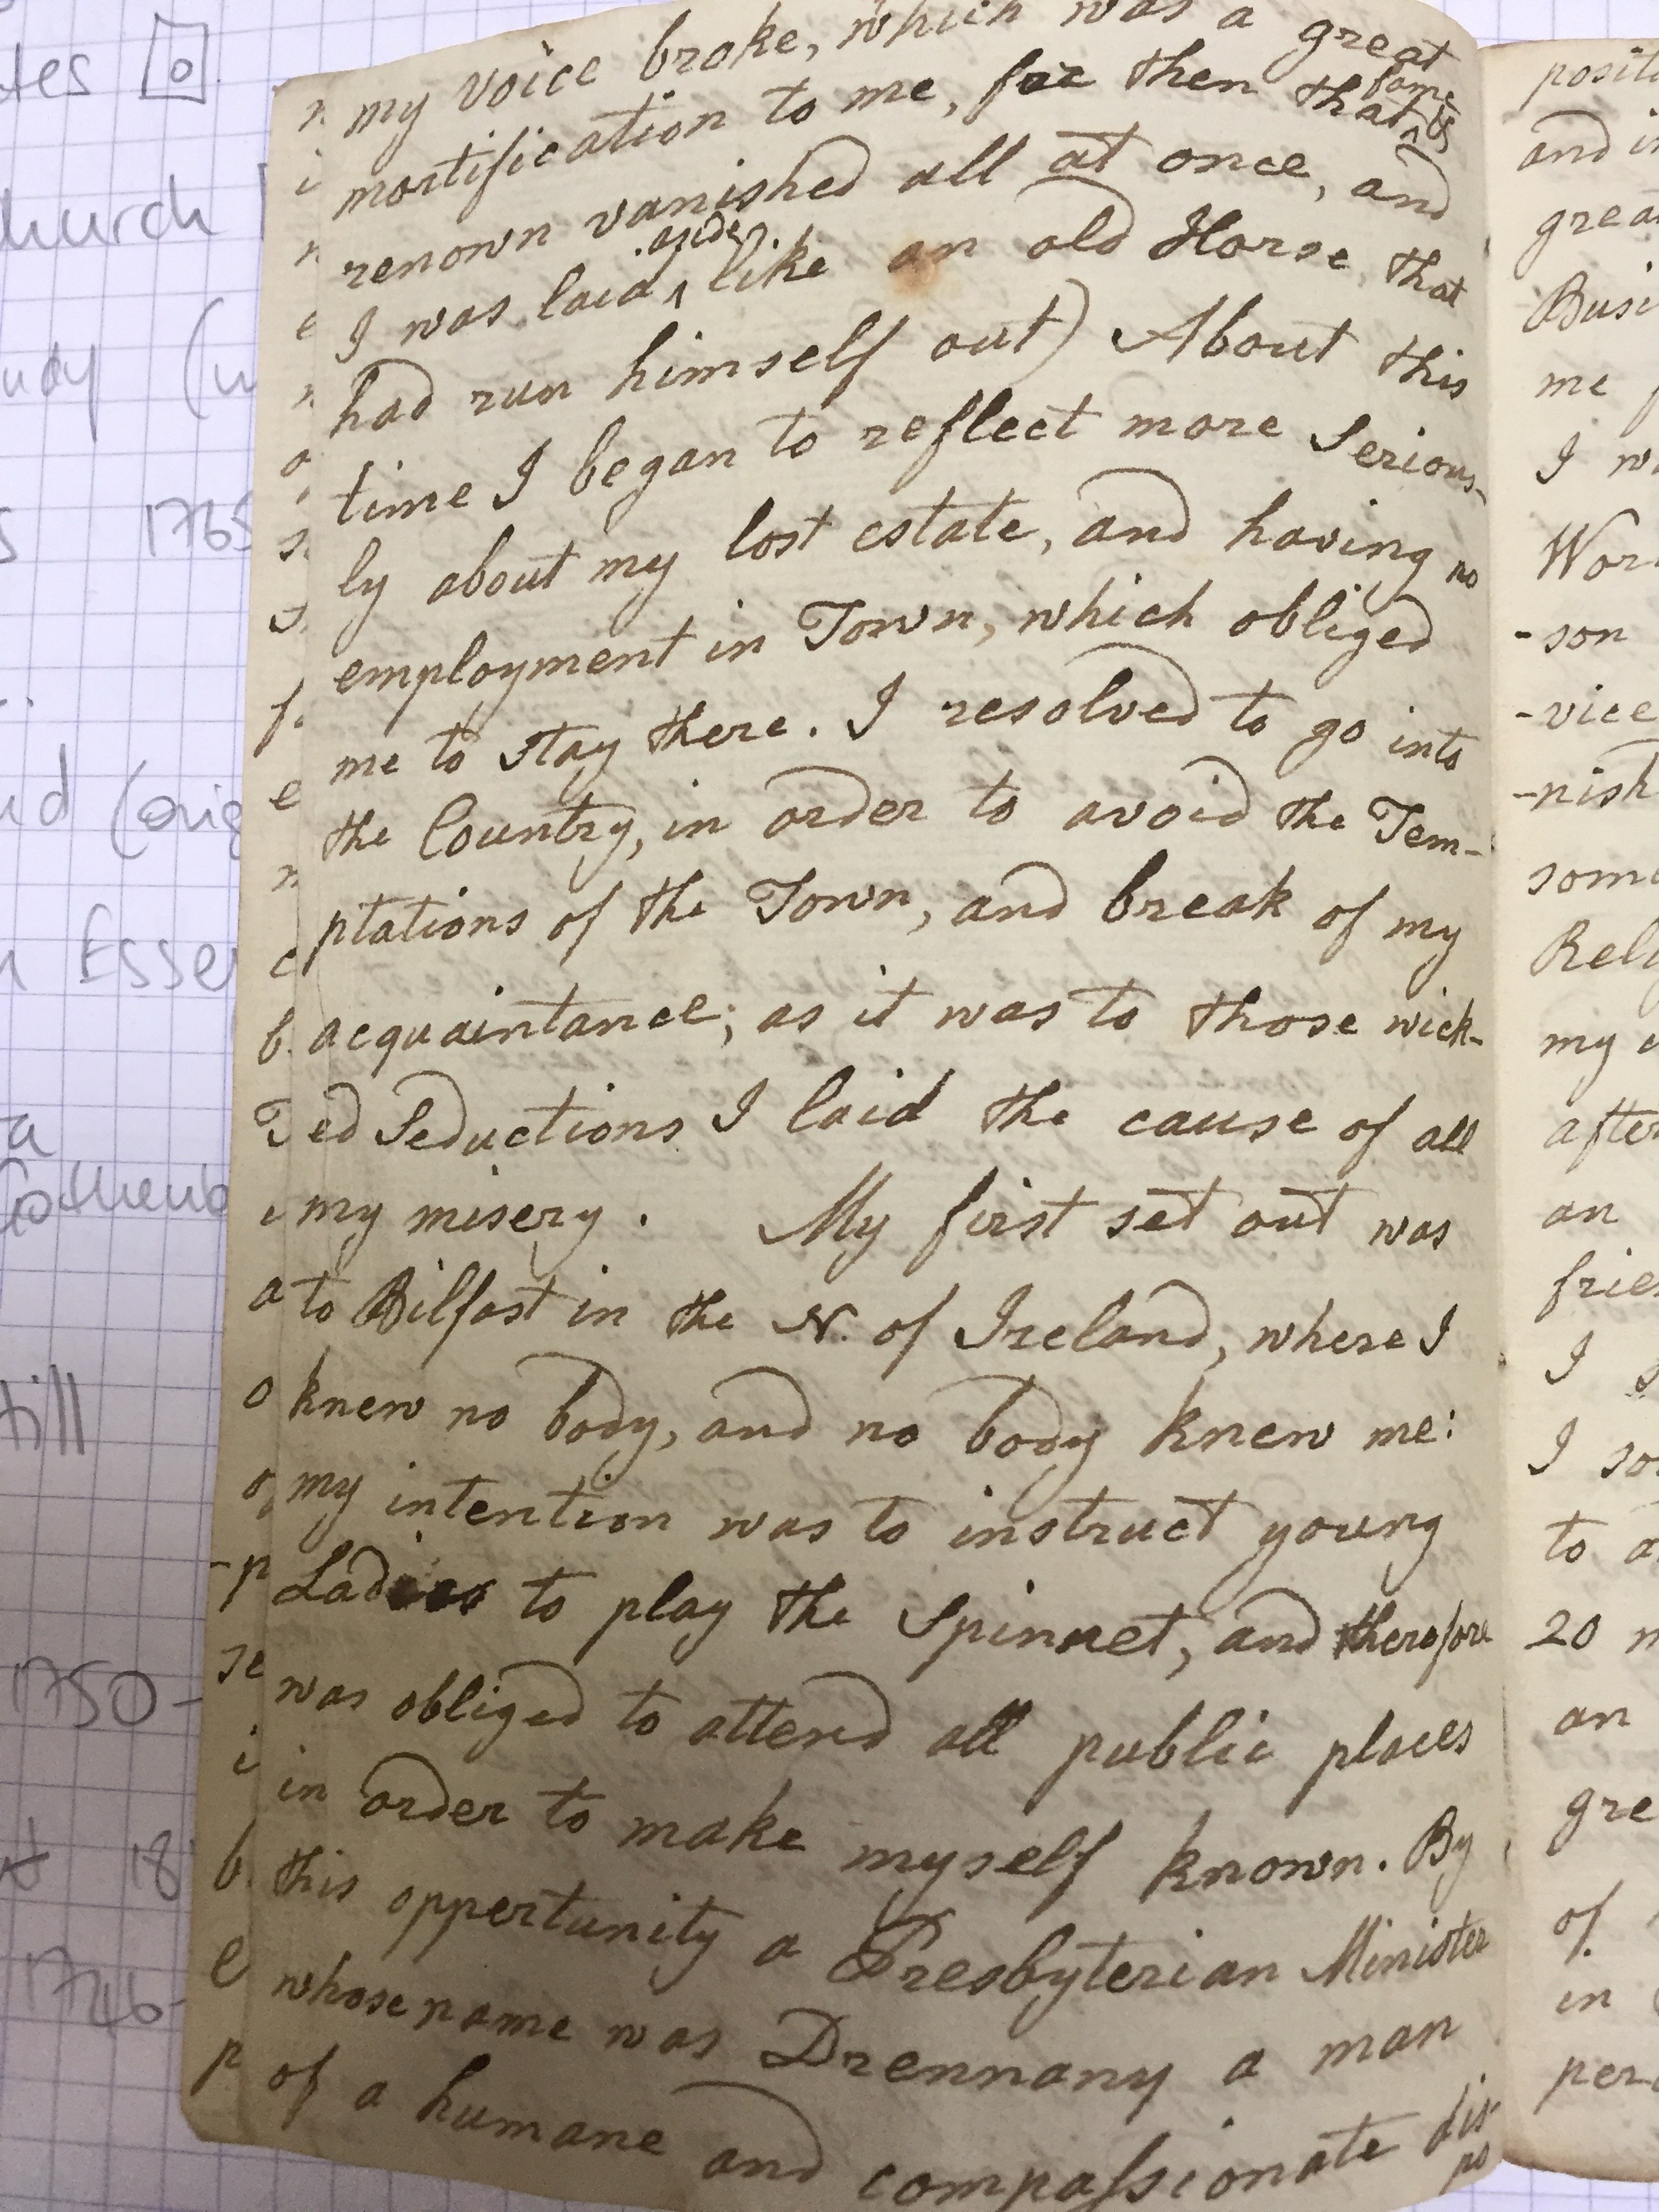 my voice broke, which was a great
mortification to me, for then that fame &
renown vanished all at once, and
I was laid aside like an old Horse that
had run himself out) About this
time I began to reflect more Serious-
ly about my lost estate, and having no
employment in Town, which obliged
me to stay there. I resolved to go into
the Country, in order to avoid the Tem-
ptations of the Town, and break of my
acquaintance; as it was to those wick-
ed Seductions I laid the cause of all
my misery. My first set out was
to Bilfast in the N. of Ireland, where I
knew no body, and no body knew me:
my intention was to instruct young
Ladies to play the Spinnet, and therefore
was obliged to attend all public places
in order to make myself known. By
this oppertunity a Presbyterian Minister
whose name was Drennany a man
of a humane and compassionate dis-
po
posit
and in
grea
Busi
me f
I w
Wor
-son
-vice
-nish
some
Reli
my
after
an
frie
I s
I so
to a
20 m
an
gre
of
in
per
tes
hurch
udy
1765
nd (orig
n Essex
a
Gothenb
till
1750-
18
1746-